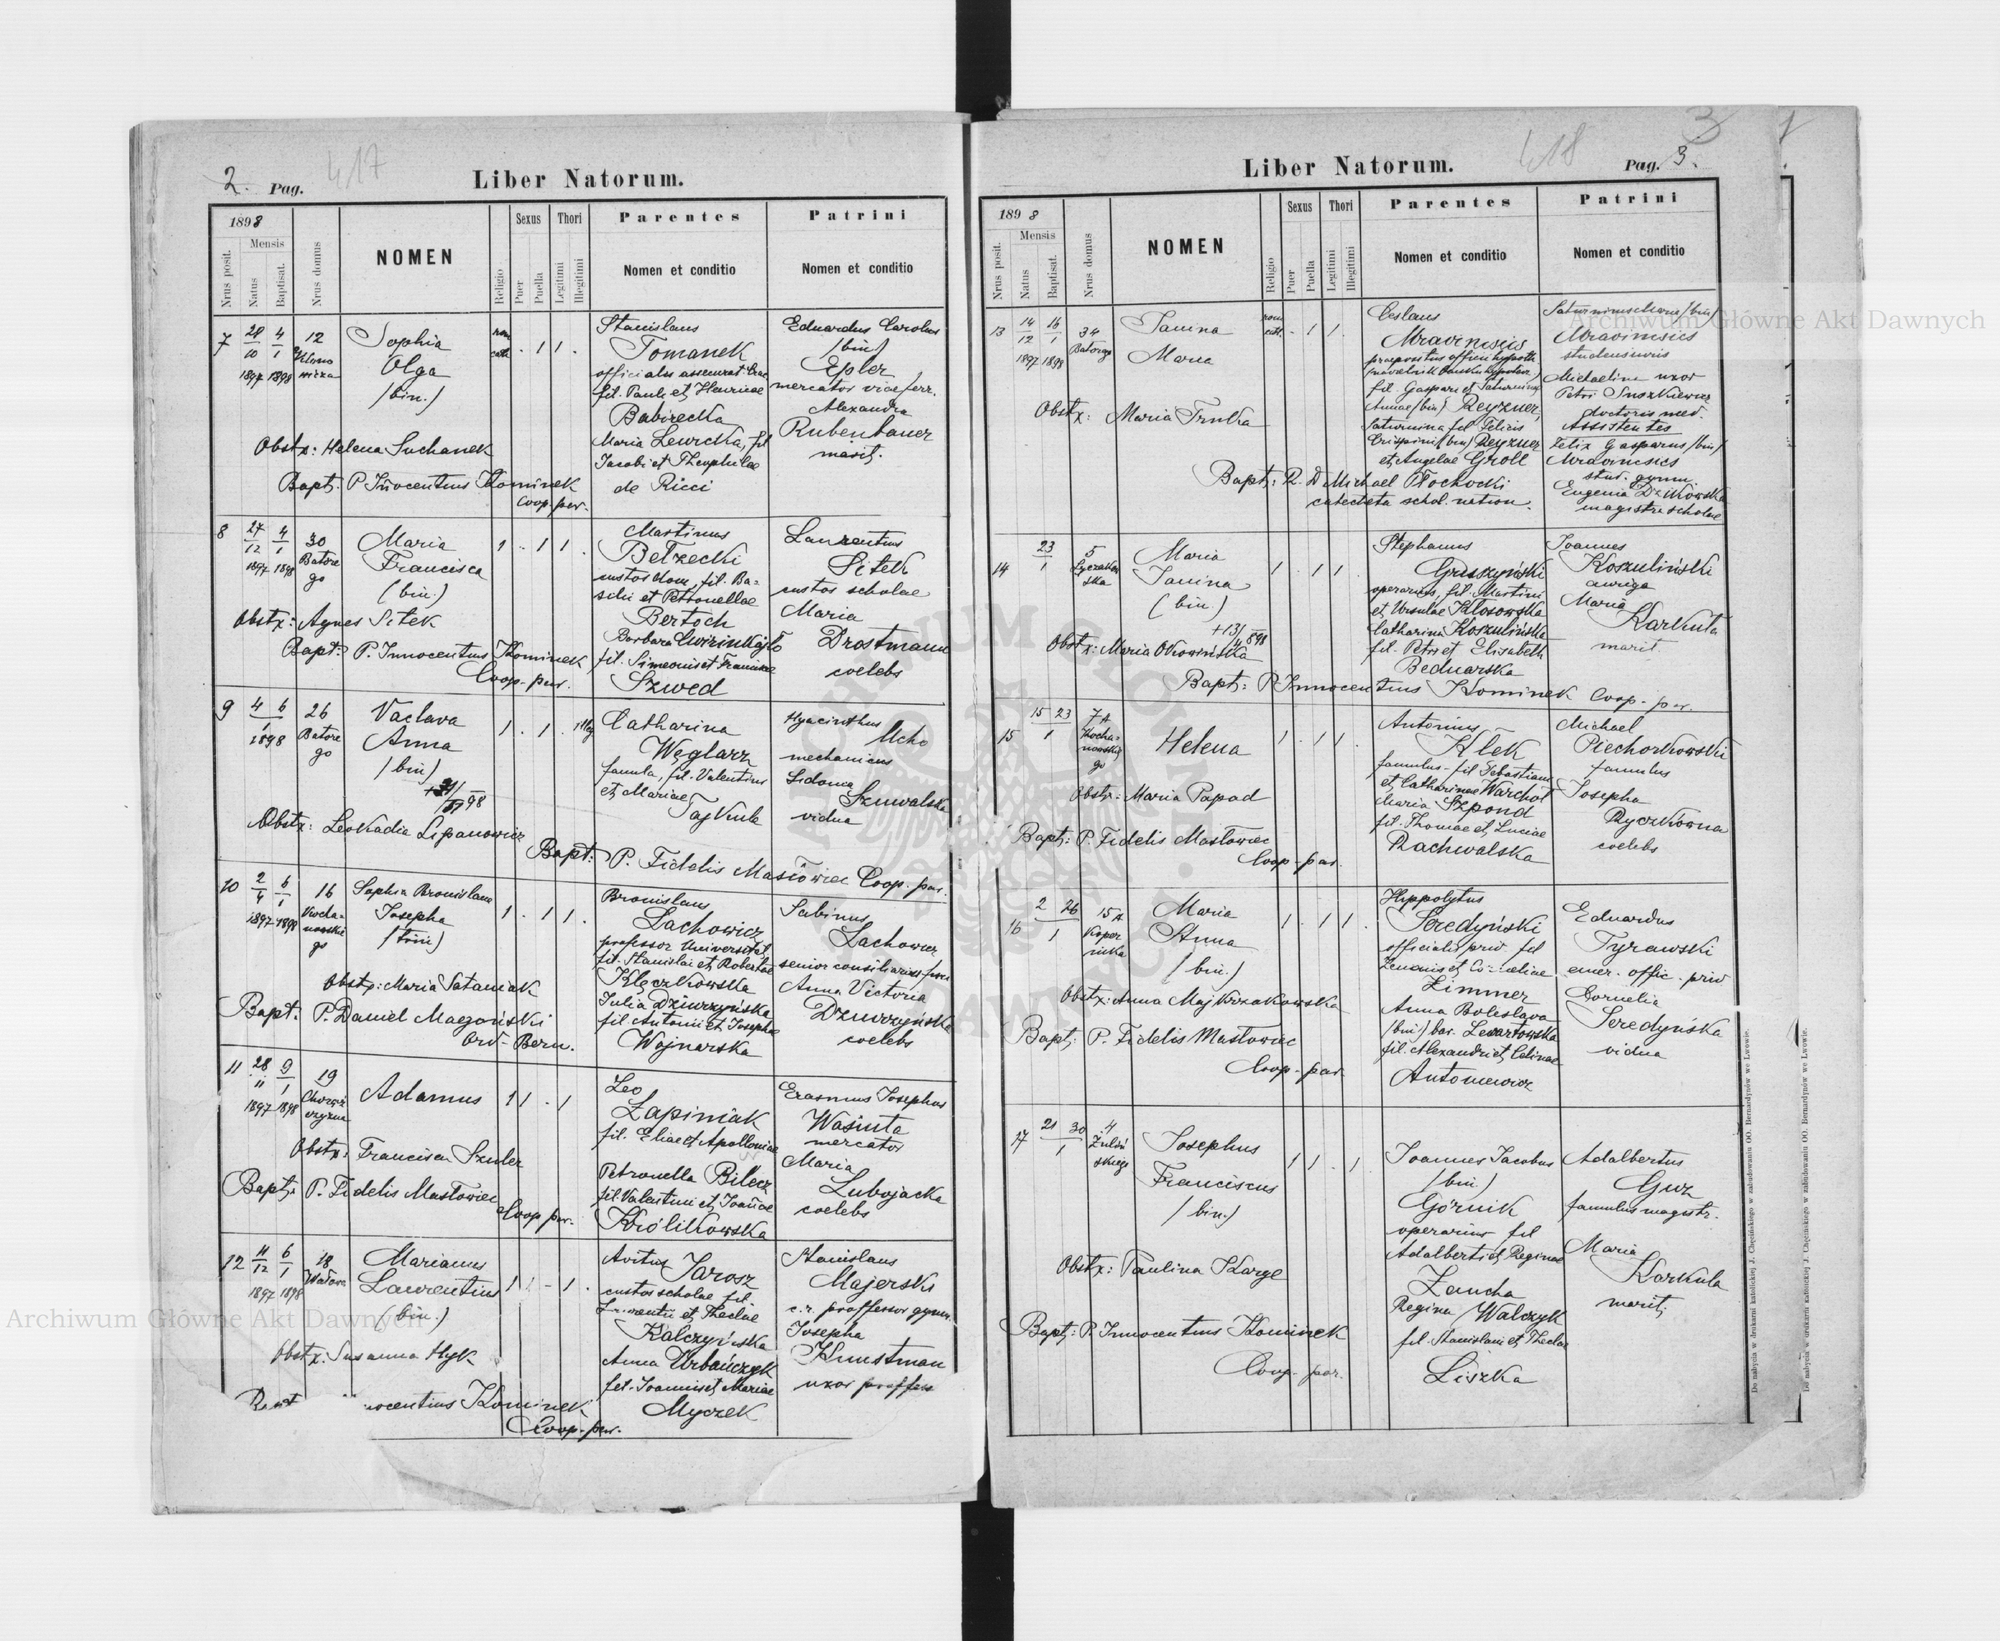 2. Pag. 417
Liber Natorum.
1898
Nrus posit.
Mensis
Natus
Baptisat.
Nrus domus
NOMEN
Religio
Sexus
Puer
Puella
Thori
Legitimi
Illegitimi
Parentes
Nomen et conditio
Patrini
Nomen et conditio
7
28/10 1897
4/1 1898
12
Sophia
Olga
(bin.)
rom
cath.
. 1 1 .
Stanislaus
Tomanek
fil. Pauli et Henricae
Babirecka
Maria Lewicka, fil
Jacobi et Theophilae
de Ricci
Eduardus Carolus
(bin)
Epler
mercator
Alexandra
Rubenbauer
marit.
Obstx: Helena Suchanek
Bapt: P. Innocentius Kominek
Coop-par.
8
27/12 1897
4/1 1898
30
Batore
go
Maria
Francisca
(bin)
1 . 1 1 .
Martinus
Betzecki
custos dom, fil. Ba-
silii et Petronellae
Bertoch
Barbara
fil. Simeonis et Franciscae
Szwed
Laurentius
Sitek
custos scholae
Maria
Drostmann
coelebs
Obstx: Agnes Sitek
Bapt: P. Innocentius Kominek
Coop-par.
9
4 6
1
1898
26
Batore
go
Vaclava
Anna
(bin)
1 . 1 . illeg
Catharina
Węglarz
famula, fil. Valentini
et Mariae
Tajkule
Hyacinthus
Ucho
mechanicus
Sidonia
Szuwalska
vidua
Obstx: Leokadia Lipanowicz
Bapt: P. Fidelis Masłowiec Coop. par.
10
2/4 1897
6/1 1898
16
Kocha-
nowskie
go
Sophia Bronislava
Josepha
(trin)
1 . 1 1 .
Bronislaus
Lachowicz
professor Universitat.
fil. Stanislai et Robertae
Kleczkowska
Julia Dziurzyńska
fil. Antonii et Josephae
Wojnarska
Sabinus
Lachowicz
senior consiliarius
Anna Victoria
Dziurzyńska
coelebs
Obstx: Maria Sataniak
Bapt: P. Daniel Magoński
Ord-Bern.
11
28/11 1897
9/1 1898
19
Adamus
1 1 . 1
Leo
Łapiniak
fil. Eliae et Apolloniae
Petronella Bilecz
fil. Valentini et Joannae
Królikowska
Erasmus Josephus
Wasiuta
mercator
Maria
Lubojacka
coelebs
Obstx: Francisca Szuler
Bapt: P. Fidelis Masłowiec
Coop par.
12
11/12 1897
6/1 1898
18
Wałowa
Marianus
Laurentius
(bin.)
1 1 - 1 .
Avitus
Jarosz
custos scholae fil.
et Theclae
Kalczyńska
Anna Urbańczyk
fil. Joannis et Mariae
Myczek
Stanislaus
Majerski
c.r. proffessor gymn.
Josepha
Kunstman
uxor proffess
Obstx: Susanna Hyk
Bapt nocentius Kominek
Coop-par.
418
Liber Natorum.
Pag. 3.
3
1
1898
Nrus posit.
Mensis
Natus
Baptisat.
Nrus domus
NOMEN
Religio
Sexus
Puer
Puella
Thori
Legitimi
Illegitimi
Parentes
Nomen et conditio
Patrini
Nomen et conditio
13
14/12 1897
16/1 1898
34
Batorego
Janina
Maria
rom
cath.
- 1 1 .
Ceslaus
Mravincsics
fil. Gaspari et Saturninae
Annae (bin) Reyzner,
Saturnina fil Felicis
Crispini (bin) Reyzner
et Angelae Groll
Mravincsics
Michaelina uxor
Petri Suszkiewicz
doctoris med.
Assistentes
Felix Gasparus (bin)
Mravincsics
stud. gymn.
Eugenia Dzikowska
magistra scholae
Obstx: Maria Trnka
Bapt: R. D Michael Płochocki
catecheta schol. nation.
14
23
1
5
Łyczakow
ska
Maria
Janina
(bin)
1 . 1 1 .
Stephanus
Gruszyński
operarius, fil. Martini
et Ursulae Kłosowska
Catharina Koszulińska
fil. Petri et Elisabeth
Bednarska
Joannes
Koszuliński
auriga
Maria
Karkuta
marit.
Obstx: Maria Okowińska
Bapt: P Innocentius Kominek Coop-par.
15
15 23
1
7A
Kocha-
nowskie
go
Helena
1 . 1 1 .
Antonius
Klek
famulus - fil Sebastiani
et Catharinae Warchoł
Maria Szpond
fil. Thomae et Luciae
Rachwalska
Michael
Piechorkowski
famulus
Josepha
Ryczkówna
coelebs
Obstx: Maria Papad
Bapt: P. Fidelis Masłowiec
Coop-par.
16
2 26
1
15A
Koper
nika
Maria
Anna
(bin.)
1 . 1 1 .
Hippolytus
Seredyński
officialis priv fil
Zenonis et Corneliae
Zimmer
Anna Boleslava
(bin) bar. Lewartowska
fil. Alexandri et Celinae
Antoniewicz
Eduardus
Tyrawski
emer. offic. priv
Cornelia
Seredyńska
vidua
Obstx: Anna Majkrzakowska
Bapt: P. Fidelis Masłowiec
Coop-par.
17
21 30
1
4
Josephus
Franciscus
(bin.)
1 1 . 1 .
Joannes Jacobus
(bin)
Górnik
operarius fil
Adalberti et Reginae
Zaucha
Regina Walczyk
fil. Stanislai et Theclae
Liszka
Adalbertus
Guz
famulus magistr.
Maria
Karkula
marit.
Obstx: Paulina Karge
Bapt: P. Innocentius Kominek
Coop-par.
Do nabycia w drukarni katolickiej J. Chęcińskiego w zabudowaniu OO. Bernardynów we Lwowie.
Do nabycia w drukarni katolickiej J. Chęcińskiego w zabudowaniu OO. Bernardynów we Lwowie.
Archiwum Główne Akt Dawnych
Archiwum Główne Akt Dawnych
ARCHIWUM GŁÓWNE AKT DAWNYCH